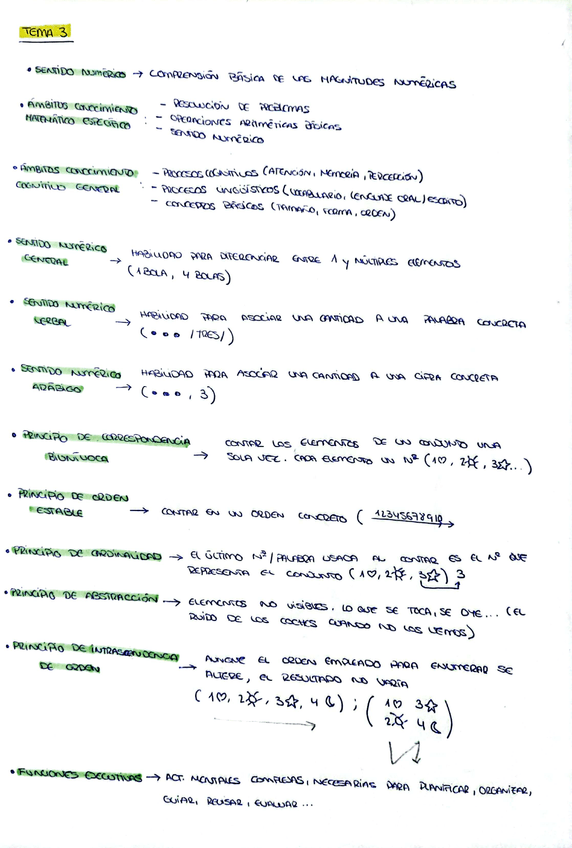 TEMA 3
• SENTIDO NUMÉRICO → COMPRENSIÓN BÁSICA DE LAS MAGNITUDES NUMÉRICAS
• ÁMBITOS CONOCIMIENTO MATEMÁTICO ESPECÍFICO :
- RESOLUCIÓN DE PROBLEMAS
- OPERACIONES ARITMÉTICAS BÁSICAS
- SENTIDO NUMÉRICO
• ÁMBITOS CONOCIMIENTO COGNITIVO GENERAL :
- PROCESOS COGNITIVOS (ATENCIÓN, MEMORIA, PERCEPCIÓN)
- PROCESOS LINGÜÍSTICOS (VOCABULARIO, LENGUAJE ORAL/ESCRITO)
- CONCEPTOS BÁSICOS (TAMAÑO, FORMA, ORDEN)
• SENTIDO NUMÉRICO GENERAL →
HABILIDAD PARA DIFERENCIAR ENTRE 1 y MÚLTIPLES ELEMENTOS
(1 BOLA, 4 BOLAS)
• SENTIDO NUMÉRICO VERBAL →
HABILIDAD PARA ASOCIAR UNA CANTIDAD A UNA PALABRA CONCRETA
(••• /TRES/)
• SENTIDO NUMÉRICO ARÁBIGO →
HABILIDAD PARA ASOCIAR UNA CANTIDAD A UNA CIFRA CONCRETA
(•••, 3)
• PRINCIPIO DE CORRESPONDENCIA BIUNÍVOCA →
CONTAR LOS ELEMENTOS DE UN CONJUNTO UNA
SOLA VEZ. CADA ELEMENTO UN Nº (1♡, 2☼, 3☆...)
• PRINCIPIO DE ORDEN ESTABLE → CONTAR EN UN ORDEN CONCRETO ( 12345678910
• PRINCIPIO DE CARDINALIDAD → EL ÚLTIMO Nº/PALABRA USADA AL CONTAR ES EL Nº QUE
REPRESENTA EL CONJUNTO (1♡, 2☼, 3☆) 3
• PRINCIPIO DE ABSTRACCIÓN → ELEMENTOS NO VISIBLES. LO QUE SE TOCA, SE OYE... (EL
RUIDO DE LOS COCHES CUANDO NO LOS VEMOS)
• PRINCIPIO DE INTRASCENDENCIA DE ORDEN →
AUNQUE EL ORDEN EMPLEADO PARA ENUMERAR SE
ALTERE, EL RESULTADO NO VARÍA
(1♡, 2☼, 3☆, 4☾) ; (1♡ 3☆
2☼ 4☾)
• FUNCIONES EXECUTIVAS → ACT. MENTALES COMPLEXAS, NECESARIAS PARA PLANIFICAR, ORGANIZAR,
GUIAR, REVISAR, EVALUAR...